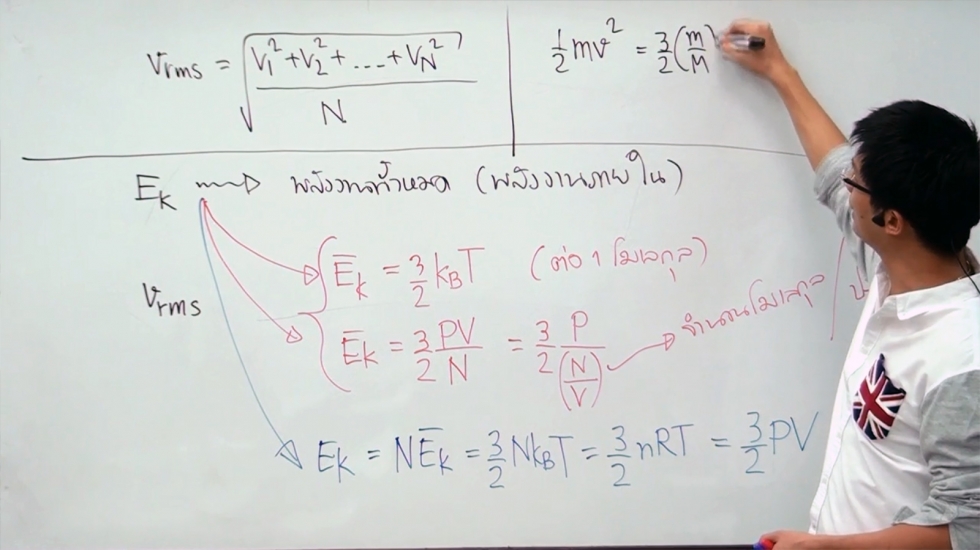 Vrms = √((V₁² + V₂² + .... + V_N²) / N)
½mv² = 3/2 (m/M)
E_K ⟿ พลังงานทั้งหมด (พลังงานภายใน)
Ē_K = 3/2 k_BT (ต่อ 1 โมเลกุล)
Vrms
Ē_K = 3/2 PV/N = 3/2 P/(N/V) → จำนวนโมเลกุล
E_K = NĒ_K = 3/2 Nk_BT = 3/2 nRT = 3/2 PV